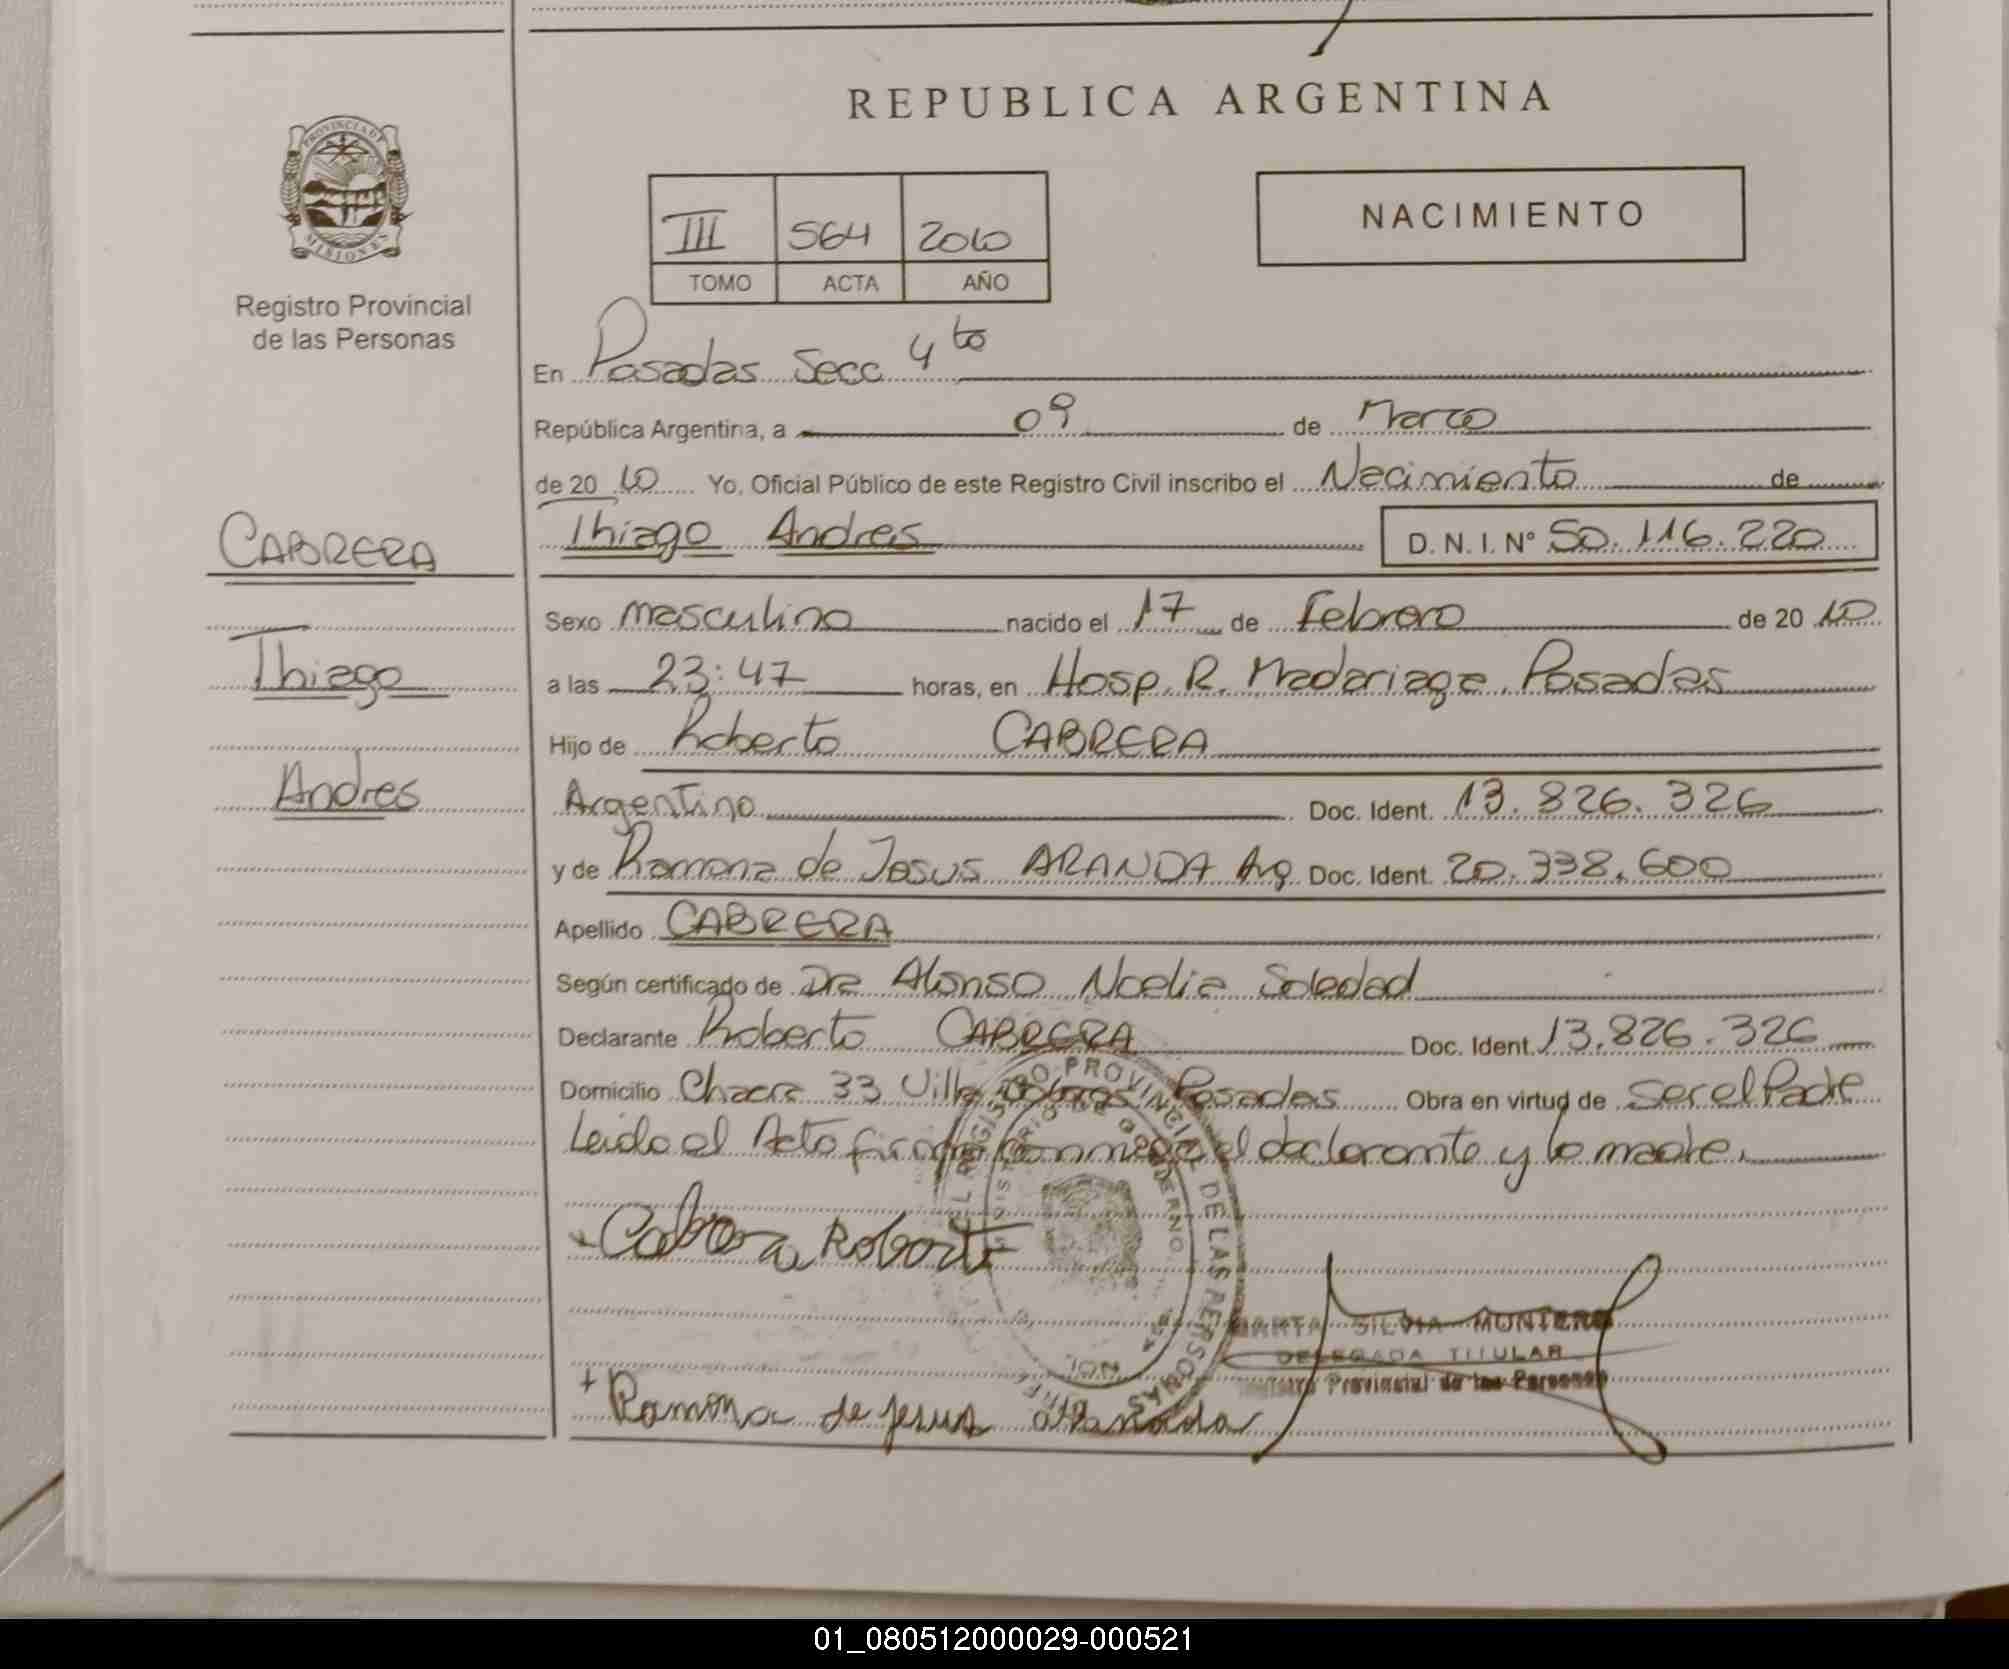 REPUBLICA ARGENTINA
PROVINCIA DE
MISIONES
Registro Provincial
de las Personas
III 564 2010
TOMO ACTA AÑO
NACIMIENTO
En Posadas Secc 4to
República Argentina, a 09 de Marzo
de 2010 Yo, Oficial Público de este Registro Civil inscribo el Nacimiento de
CABRERA
Thiago Andres D. N. I. Nº 50.116.220
Sexo masculino nacido el 17 de Febrero de 2010
Thiago
a las 23:47 horas, en Hosp. R. Madariaga. Posadas
Hijo de Roberto CABRERA
Andres
Argentino Doc. Ident. 13.826.326
y de Ramona de Jesus ARANDA Arg Doc. Ident. 20.338.600
Apellido CABRERA
Según certificado de Dra Alonso Noelia Soledad
Declarante Roberto CABRERA Doc. Ident. 13.826.326
Domicilio Chacra 33 Villa Posadas Obra en virtud de Ser el Padre
Leido el Acta firma conmigo el declarante y la madre.
REGISTRO PROVINCIAL DE LAS PERSONAS
MINISTERIO DE GOBIERNO
Cabrera Roberto
MARTA SILVIA MONTERO
DELEGADA TITULAR
Registro Provincial de las Personas
+ Ramona de Jesus aranda
01_080512000029-000521